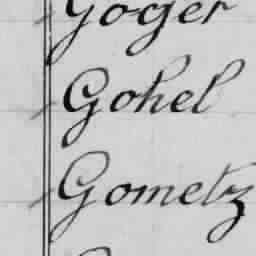 Goger
Gohel
Gometz